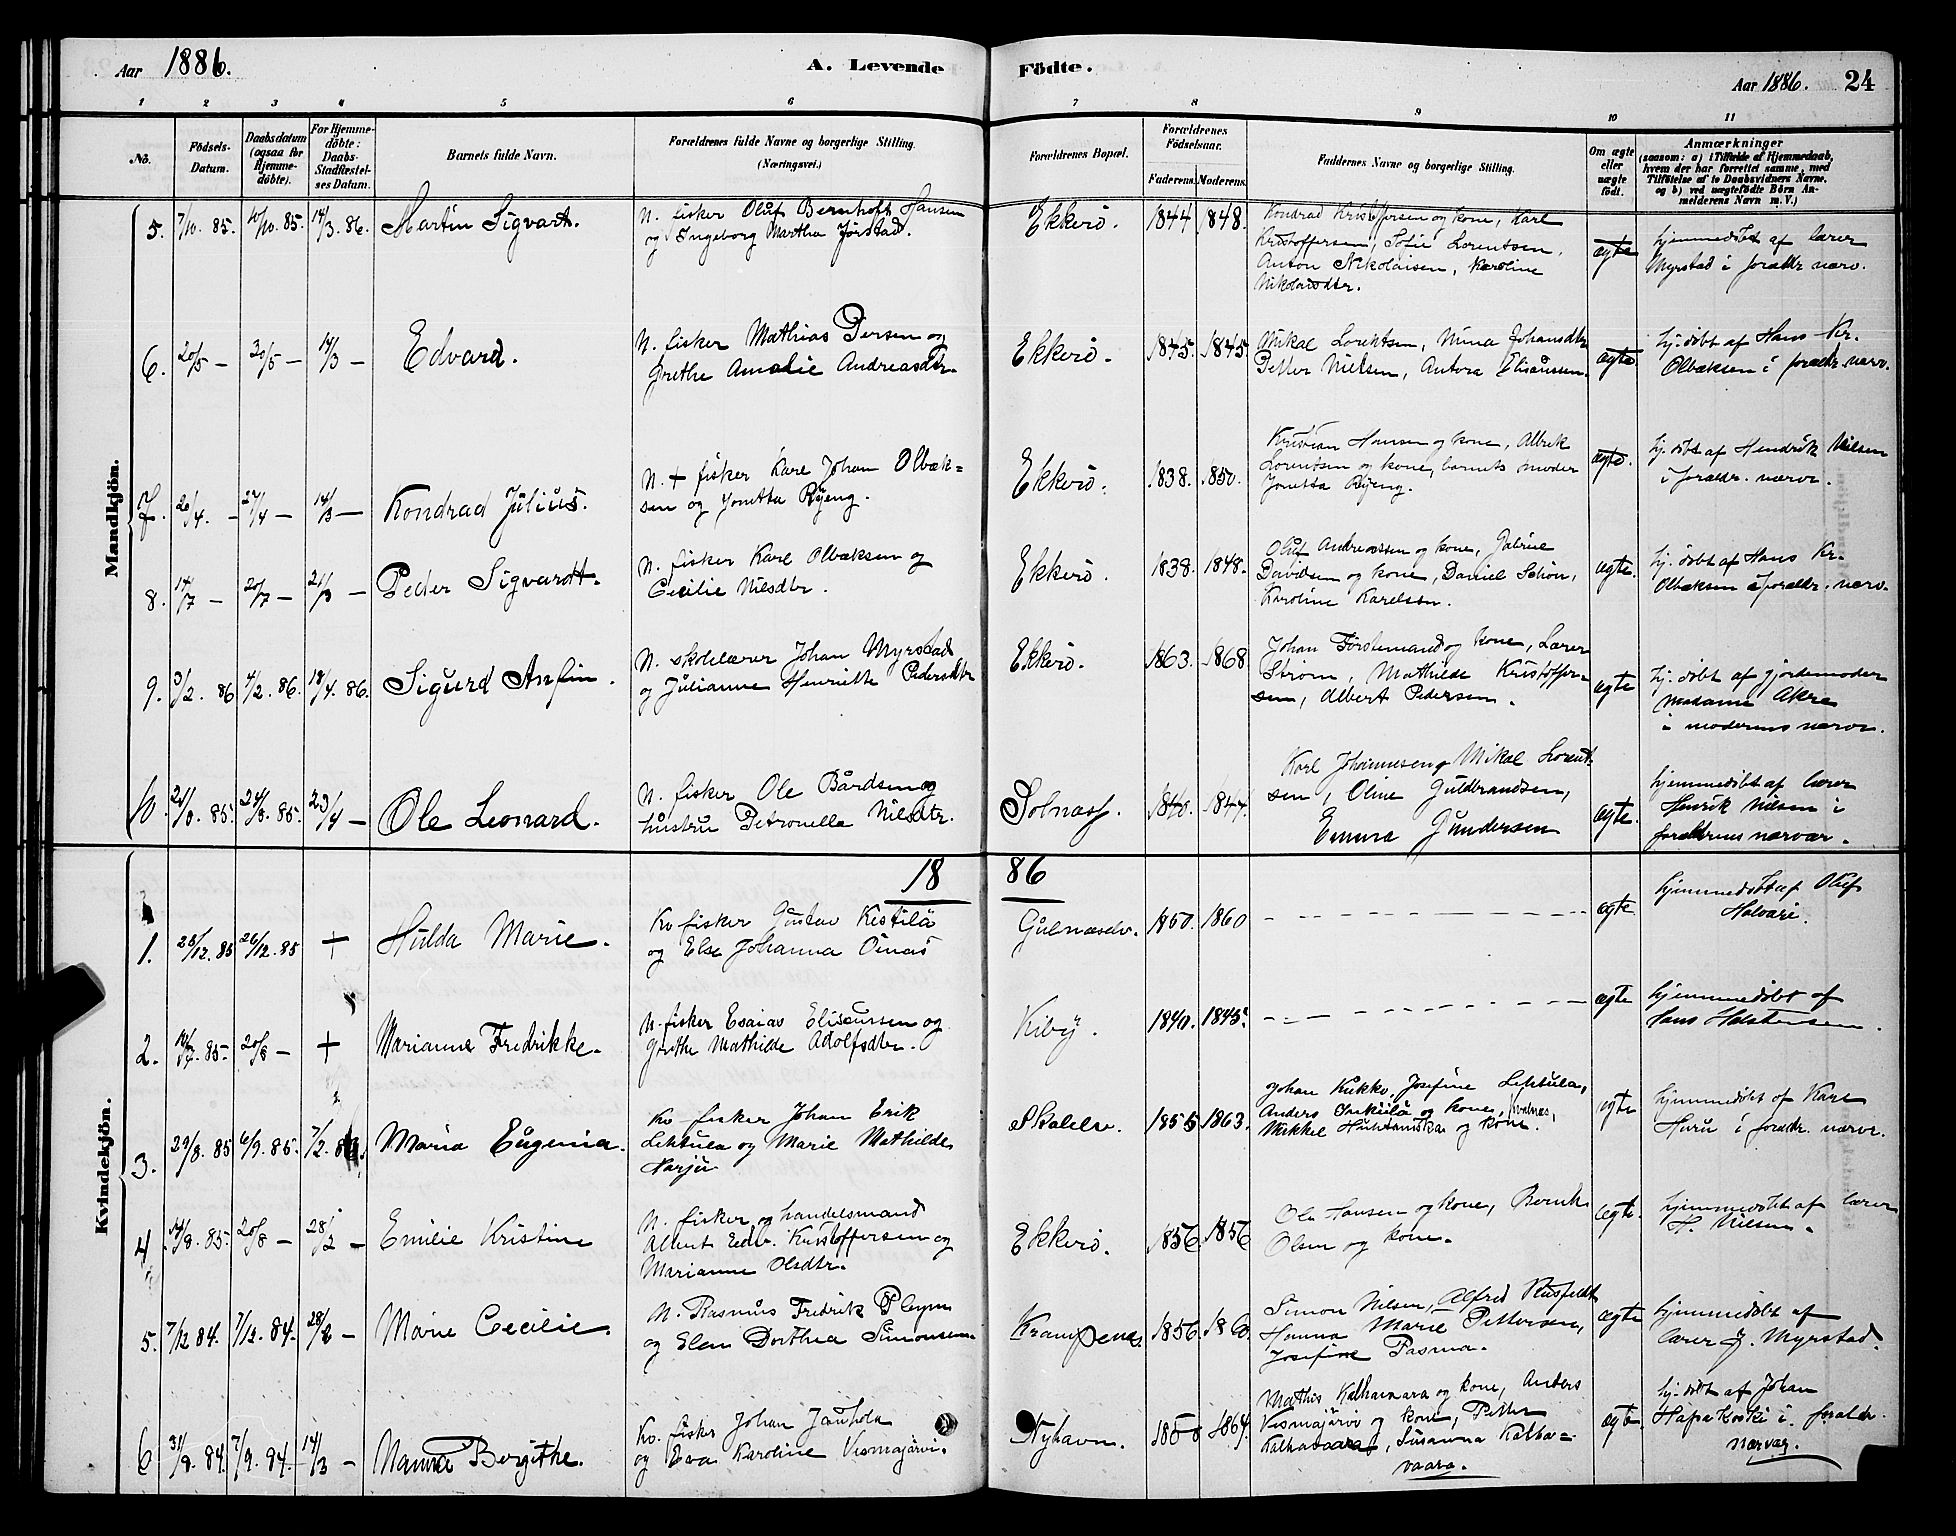 Aar 1886. A. Levende Födte. Aar 1886. 24
1 2 3 4 5 6 7 8 9 10 11
No. Födsels-Datum. Daabsdatum (ogsaa for Hjemme-döbte). For Hjemme-döbte: Daabs-Stadfæstel-ses Datum. Barnets fulde Navn. Forældrenes fulde Navne og borgerlige Stilling. (Næringsvei.) Forældrenes Bopæl. Forældrenes Födselsaar. Faderens. Moderens. Faddernes Navne og borgerlige Stilling. Om ægte eller uægte födt. Anmærkninger (saasom: a) i Tilfælde af Hjemmedaab, hvem der har forrettet samme, med Tilföielse af to Daabsvidners Navne, og b) ved uægtefödte Börn An-melderens Navn m. V.)
Mandkjön.
5. 7/10. 85. 10/10. 85. 14/3. 86. Martin Sigvart. N. fisker Oluf Bernhoft Hansen
og Ingeborg Martha Jörstad.
Ekkerö. 1844 1848.
Kondrad Kristoffersen og kone, Karl
Kristoffersen, Sofie Lorentsen,
Anton Nikolaisen, Karoline
Nikolaisdtr.
ægte
hjemmedöbt af lærer
Myrstad i forældr. nærv.
6. 20/5 — 30/5 — 14/3 — Edvard. N. fisker Mathias Persen og
Grethe Amalie Andreasdtr.
Ekkerö. 1845. 1845
Mikal Lorentsen, Nina Johansdtr
Petter Nielsen, Antora Elisæussen.
ægte
hj. döbt af Hans Kr.
Olbæksen i forældr. nærv.
7. 26/4. — 27/4 — 14/3 — Kondrad Julius. N. + fisker Karl Johan Olbæk=
sen og Jonetta Ryeng.
Ekkerö. 1838. 1850.
Kristian Hansen og kone, Albrik
Lorentsen og kone, barnets moder
Jonetta Ryeng.
ægte.
hj. döbt af Hendrik Nilsen
i forældr. nærv.
8. 14/7 — 20/7 — 21/3 — Peder Sigvardt. N. fisker Karl Olbæksen og
Cecilie Nilsdtr.
Ekkerö. 1838. 1848.
Oluf Andreassen og kone, Gabriel
Davidsen og kone, Daniel Schön,
Karoline Karelsen.
ægte.
hj. döbt af Hans Kr.
Olbæksen i forældr. nærv.
9. 3/2. 86 4/2. 86. 18/4. 86. Sigurd Anfin. N. skolelærer Johan Myrstad
og Julianne Henriette Pedersdtr
Ekkerö. 1863. 1868
Johan Förstemand og kone, Lærer
Ström, Mathilde Kristoffer-
sen, Albert Pedersen.
ægte
hj. döbt af gjordemoder
madame Akre
i moderens nærv.
10. 85. 85. 23/4 — Ole Leonard. N. fisker Ole Bårdsen og
hustru Petronella Nilsdtr.
1840. 1844.
Karl Johannesen, Mikal Lorent-
sen, Oline Guldbrandsen,
Emma Gundersen
ægte.
hjemmedöbt af lærer
Henrik Nilsen i
forældrenes nærvær.
18 86
Kvindekjön.
1. 25/12. 85 26/12. 85 + Hulda Marie. Kv. fisker Gustav Kestilä
og Else Johanna Oinas
Gulnæselv. 1850. 1860
ægte
hjemmedöbt af Oluf
Halvari.
2. 85. 20/8 — + Marianne Fredrikke. N. fisker Esaias Elisæussen og
Grethe Mathilde Adolfsdtr.
Kiby. 1840. 1845.
ægte
hjemmedöbt af
Hans Holstensen.
3. 29/8. 85 6/9. 85. 7/2. 86. Maria Eugenia. Kv. fisker Johan Erik
Lehtula og Marie Mathilde
Narju
Skalelv. 1855 1863.
Johan Kukko, Josefine Lehtula,
Anders og kone,
Mikkel og kone.
ægte
hjemmedöbt af Karl
Huru i forældr. nærv.
4. 14/8. 85. 20/8 — 28/2 — Emilie Kristine N. fisker og handelsmand
Albert Edv. Kristoffersen og
Marianne Olsdtr.
Ekkerö. 1856. 1856
Ole Hansen og kone, Bernh.
Olsen og kone.
ægte.
hjemmedöbt af lærer
H. Nilsen.
5. 7/12 84. 7/12. 84. 28/2 — Marie Cecilie. N. Rasmus Fredrik Pleym
og Elen Dorthea Simonsen
Krampenes. 1856.
Simon Nilsen, Alfred Rusfeldt
Hanna Marie Pettersen,
Josefine Pasma.
ægte
hjemmedöbt af
lærer J. Myrstad.
6 31/8. 84. 7/9. 84. 14/3 — Manna Bergithe. Kv. fisker Johan Jauhola
og Eva Karoline Vismajärvi.
Nyhavn. 1864.
Mathis Kalhavaara og kone, Anders
Vismajärvi og kone, Petter
Kalhavaara, Susanna Kalha=
vaara.
ægte
hj. döbt af Johan
Hapakoski i forældr.
nærvær.